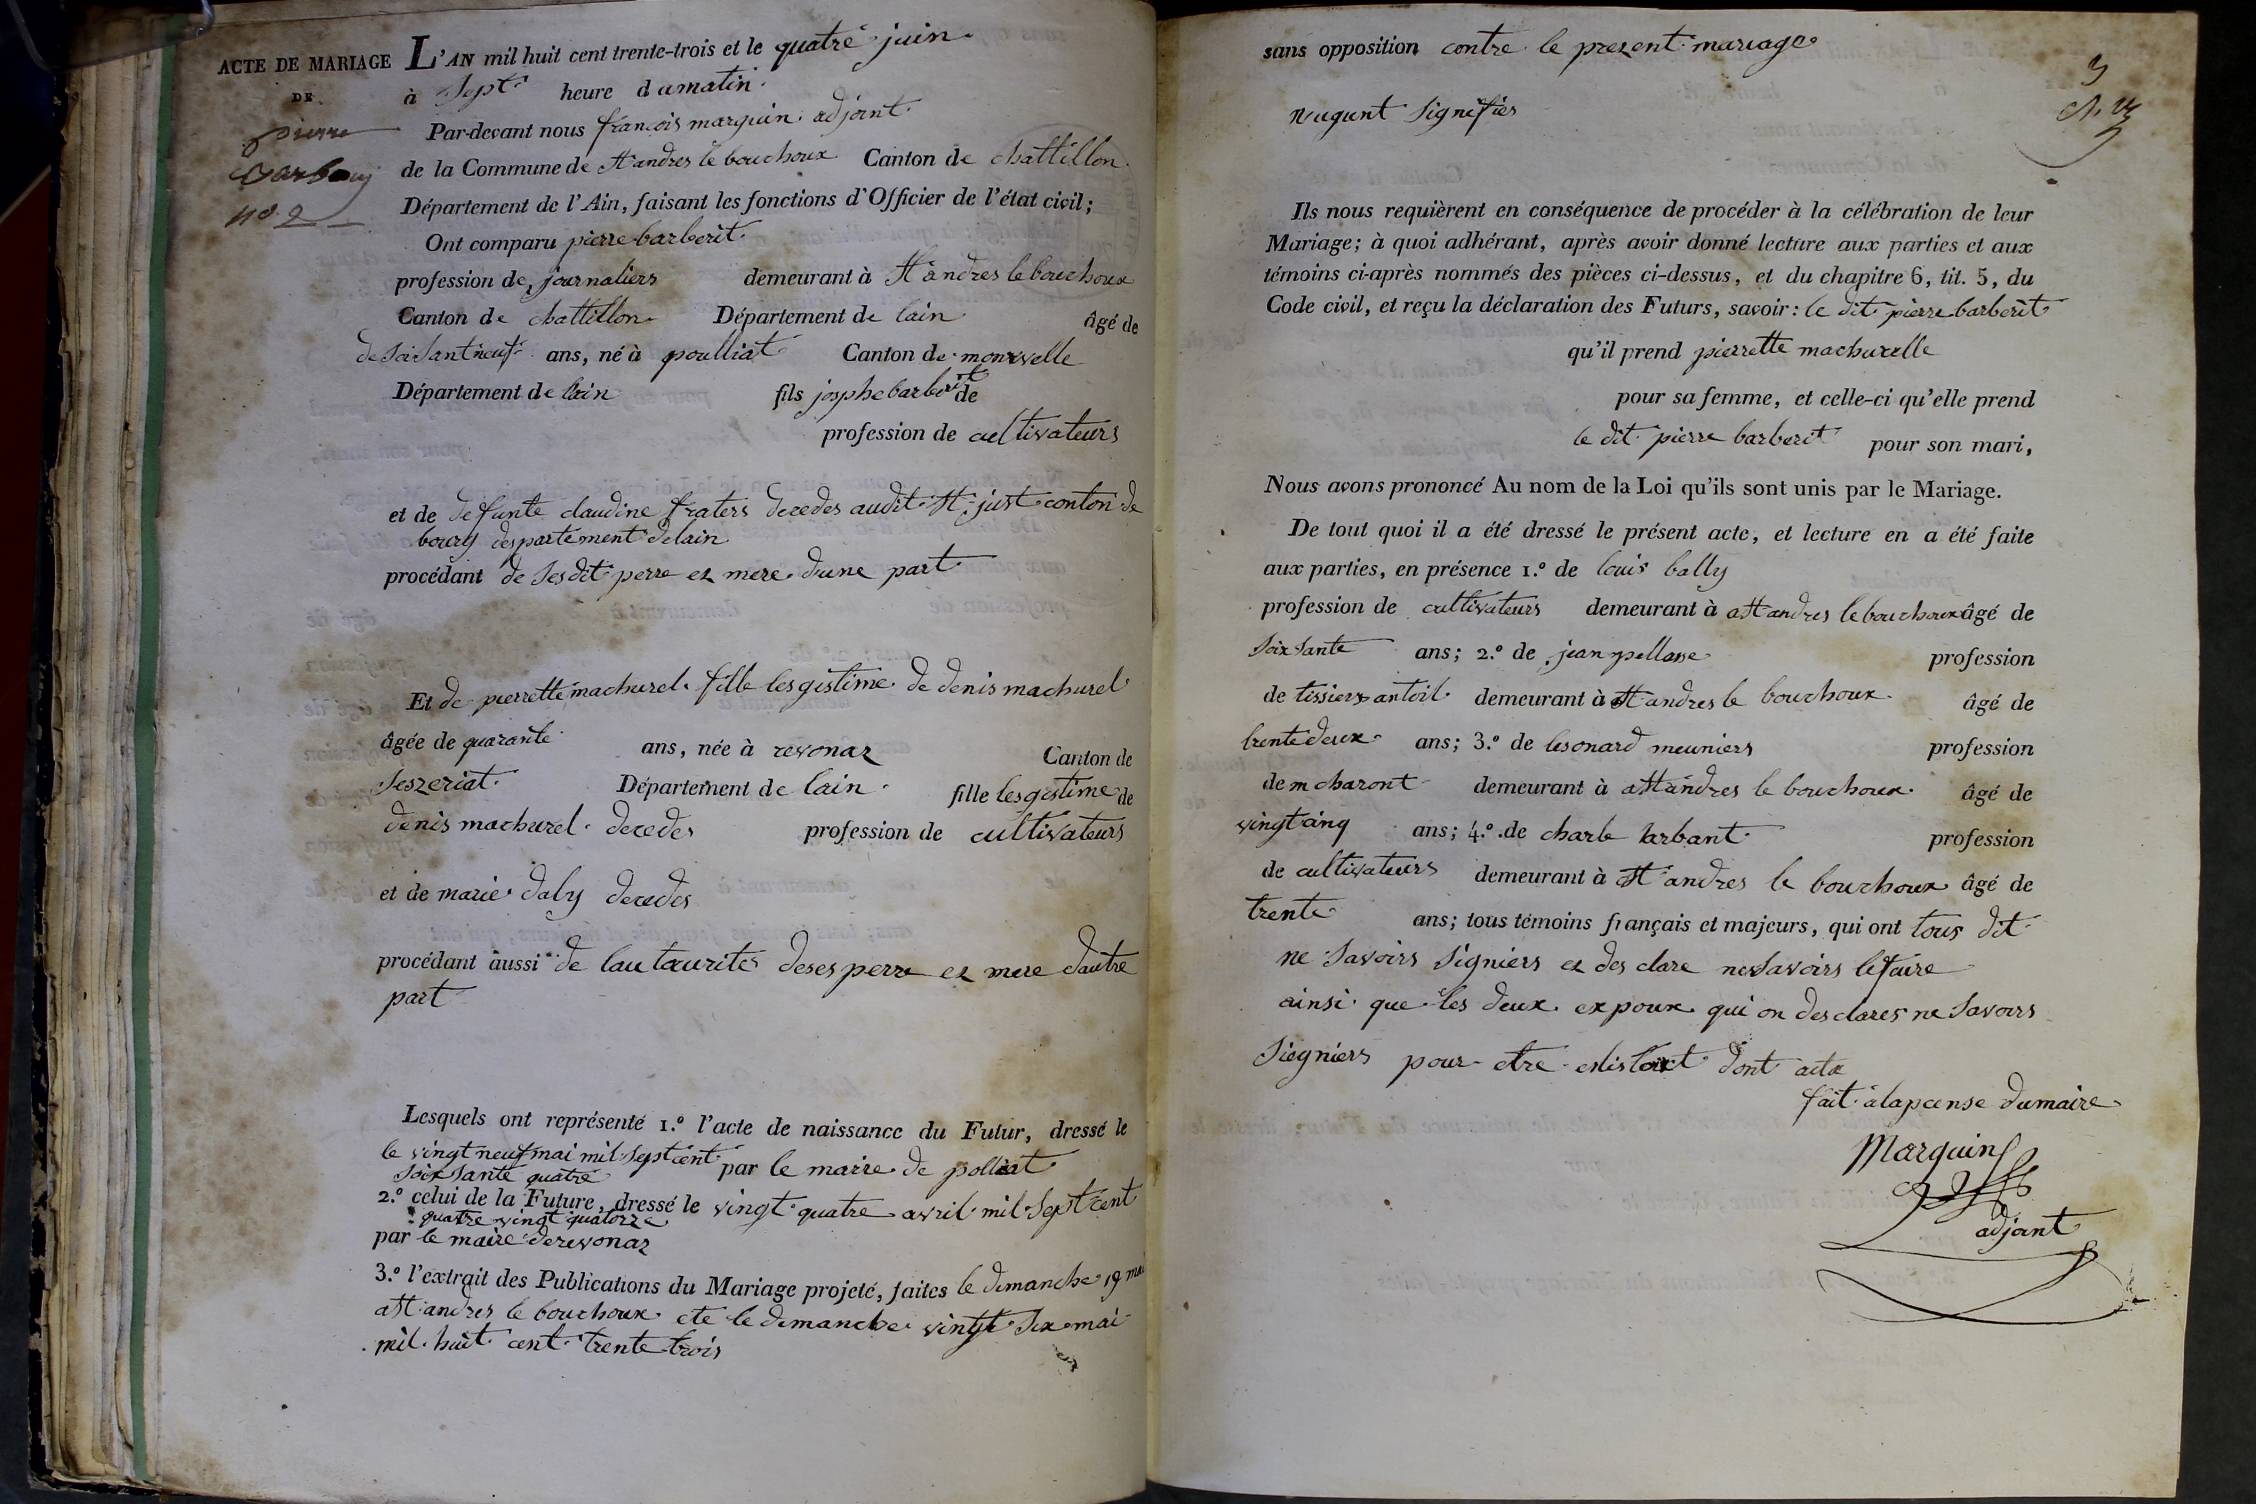 ACTE DE MARIAGE
DE
pierre
no. 2
L'AN mil huit cent trente-trois et le quatre juin
à Sept heure dumatin
Par-devant nous francois marguin adjoint
de la Commune de St andres le bouchoux Canton de chattillon
Département de l'Ain, faisant les fonctions d'Officier de l'état civil;
Ont comparu pierre barberit
profession de journaliers demeurant à St andres le bouchoux
Canton de chattillon Département de lain âgé de
de Soisantneuf ans, né à poulliat Canton de monrevelle
Département de lain fils josphe barberit de
profession de cultivateurs
et de defunte claudine fraters decedes audit St just conton de
bourg despartement delain
procédant de Sesdit perre ez mere dune part
Et de pierrette machurel fille lesgistime de denis machurel
âgée de quarante ans, née à revonaz Canton de
Seszeriat Département de lain fille lesgistime de
denis machurel decedes profession de cultivateurs
et de marie daly decedes
procédant aussi de lautaurites deses perre ez mere dautre
part
Lesquels ont représenté 1.º l'acte de naissance du Futur, dressé le
le vingt neuf mai mil Sept cent
Soix Sante quatre par le maire de polliat
2.º celui de la Future, dressé le vingt quatre avril mil Sept cent
quatre vingt quatorze
par le maire derevonaz
3.º l'extrait des Publications du Mariage projeté, faites le dimanche 19 mai
aSt andres le bouchoux ete le dimanche vingt Six mai
mil huit cent trente trois
sans opposition contre le prezent mariage
nuqunt Signifies
Ils nous requièrent en conséquence de procéder à la célébration de leur
Mariage; à quoi adhérant, après avoir donné lecture aux parties et aux
témoins ci-après nommés des pièces ci-dessus, et du chapitre 6, tit. 5, du
Code civil, et reçu la déclaration des Futurs, savoir: le dit pierre barberit
qu'il prend pierrette machurelle
pour sa femme, et celle-ci qu'elle prend
le dit pierre barberit pour son mari,
Nous avons prononcé Au nom de la Loi qu'ils sont unis par le Mariage.
De tout quoi il a été dressé le présent acte, et lecture en a été faite
aux parties, en présence 1.º de louis bally
profession de cultivateurs demeurant à aSt andres le bouchoux âgé de
Soix Sante ans; 2.º de jean pellasse profession
de tissiers antoil demeurant à St andres le bouchoux âgé de
trentedeux ans; 3.º de lesonard meuniers profession
de m charont demeurant à aSt andres le bouchoux âgé de
vingt cinq ans; 4.º de charle profession
de cultivateurs demeurant à St andres le bouchoux âgé de
trente ans; tous témoins français et majeurs, qui ont tous dit
ne Savoirs Signiers ez des clare nesavoirs lefaire
ainsi que les deux expoux qui on desclares ne Savoirs
Siegniers pour etre dont acte
fait alapeense dumaire
Marguin
adjoint